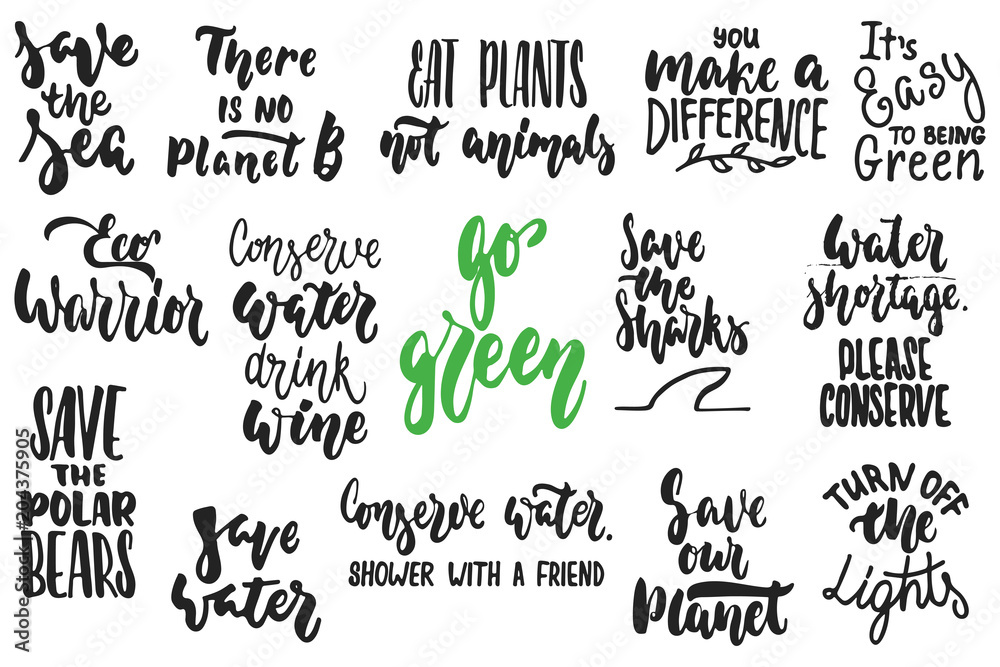 Save
the
Sea
There
IS NO
Planet B
EAT PLANTS
not animals
YOU
make a
DIFFERENCE
It's
Easy
TO BEING
Green
Eco
Warrior
Conserve
water
drink
wine
go
green
Save
the
Sharks
Water
shortage.
PLEASE
CONSERVE
SAVE
THE
POLAR
BEARS
Save
water
Conserve water.
SHOWER WITH A FRIEND
Save
our
Planet
TURN OFF
the
Lights
Adobe Stock | #204375905